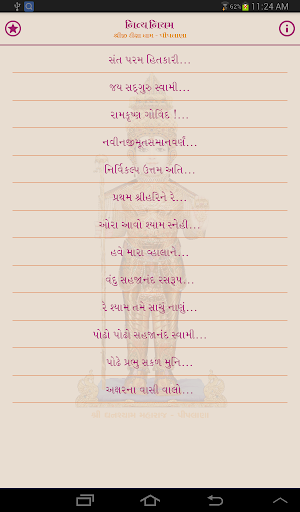 62%
11:24 AM
નિત્ય નિયમ
સંત પરમ હિતકારી...
જય સદ્‌ગુરુ સ્વામી...
રામકૃષ્ણ ગોવિંદ !...
નવીનજીમૂતસમાનવર્ણં...
નિર્વિકલ્પ ઉત્તમ અતિ...
પ્રથમ શ્રીહરિને રે...
ઓરા આવો શ્યામ સ્નેહી...
હવે મારા વ્હાલાને...
વંદુ સહજાનંદ રસરૂપ...
રે શ્યામ તમે સાચું નાણું...
પોઢો પોઢો સહજાનંદ સ્વામી...
પોઢે પ્રભુ સકળ મુનિ...
અક્ષરના વાસી વાલો...